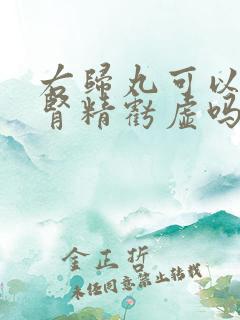 右归丸可以
肾精亏虚吗
金正哲
未经同意禁止转载